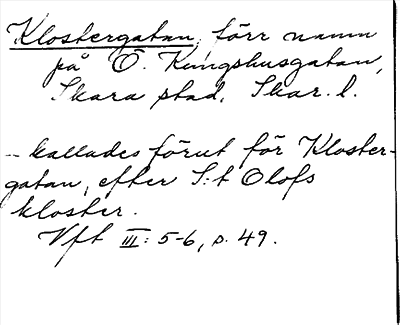 Klostergatan, förr namn
på Ö. Kungshusgatan,
Skara stad, Skar. l.
-- kallades förut för Kloster-
gatan, efter S:t Olofs
kloster.
Vft III: 5-6, p. 49.